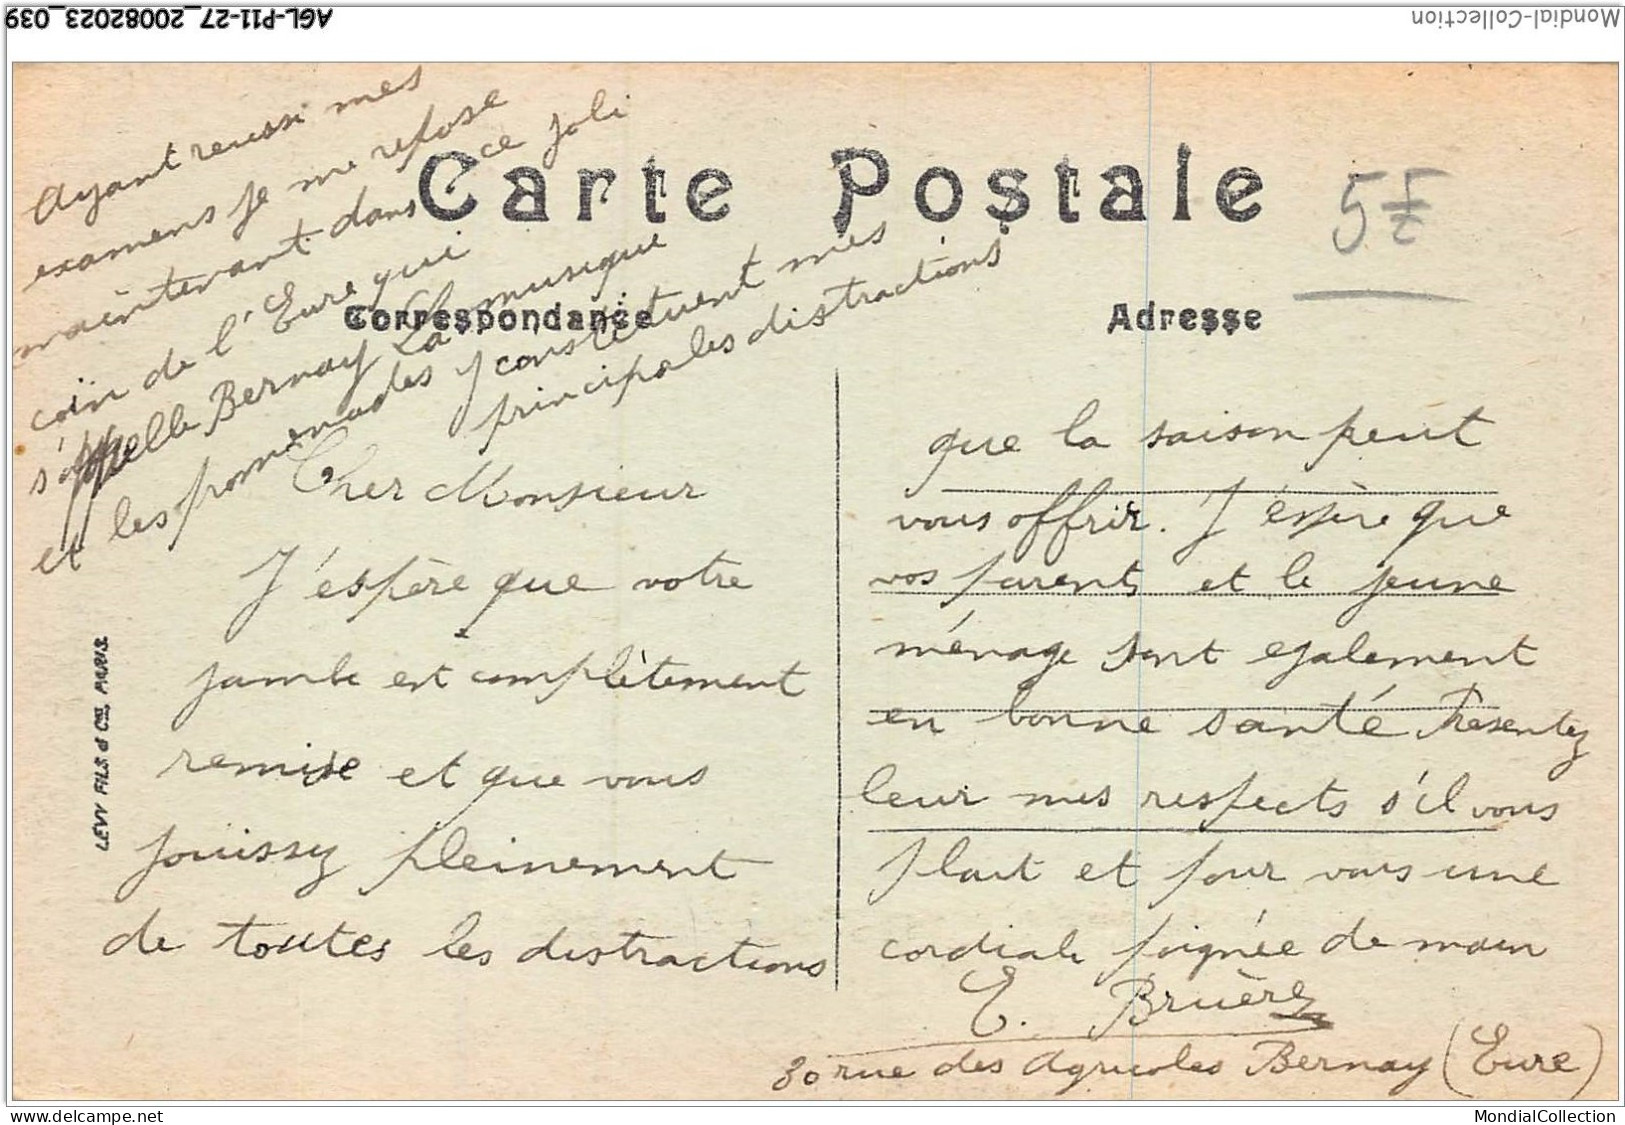 AGL-P11-27_20082023_039
Mondial-Collection
Carte Postale
5F
Correspondance
Adresse
Cher Monsieur
J'espère que votre
jambe est complètement
remise et que vous
jouissez pleinement
de toutes les distractions
que la saison peut
vous offrir. J'éspère que
vos parents et le jeune
ménage sont egalement
en bonne santé Presentez
leur mes respects s'il vous
plait et pour vous une
cordiale poignée de main
E. Bruère
30 rue des Agricoles Bernay (Eure)
Ayant reussi mes
examens je me repose
maintenant dans ce joli
coin de l'Eure qui
s'appelle Bernay La musique
et les promenades y constituent mes
principales distractions
LEVY FILS & Cie, PARIS.
MondialCollection